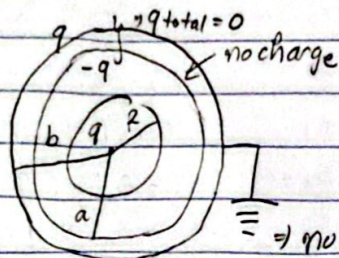 q q total = 0
-q no charge
q R
b
a
⇒ no